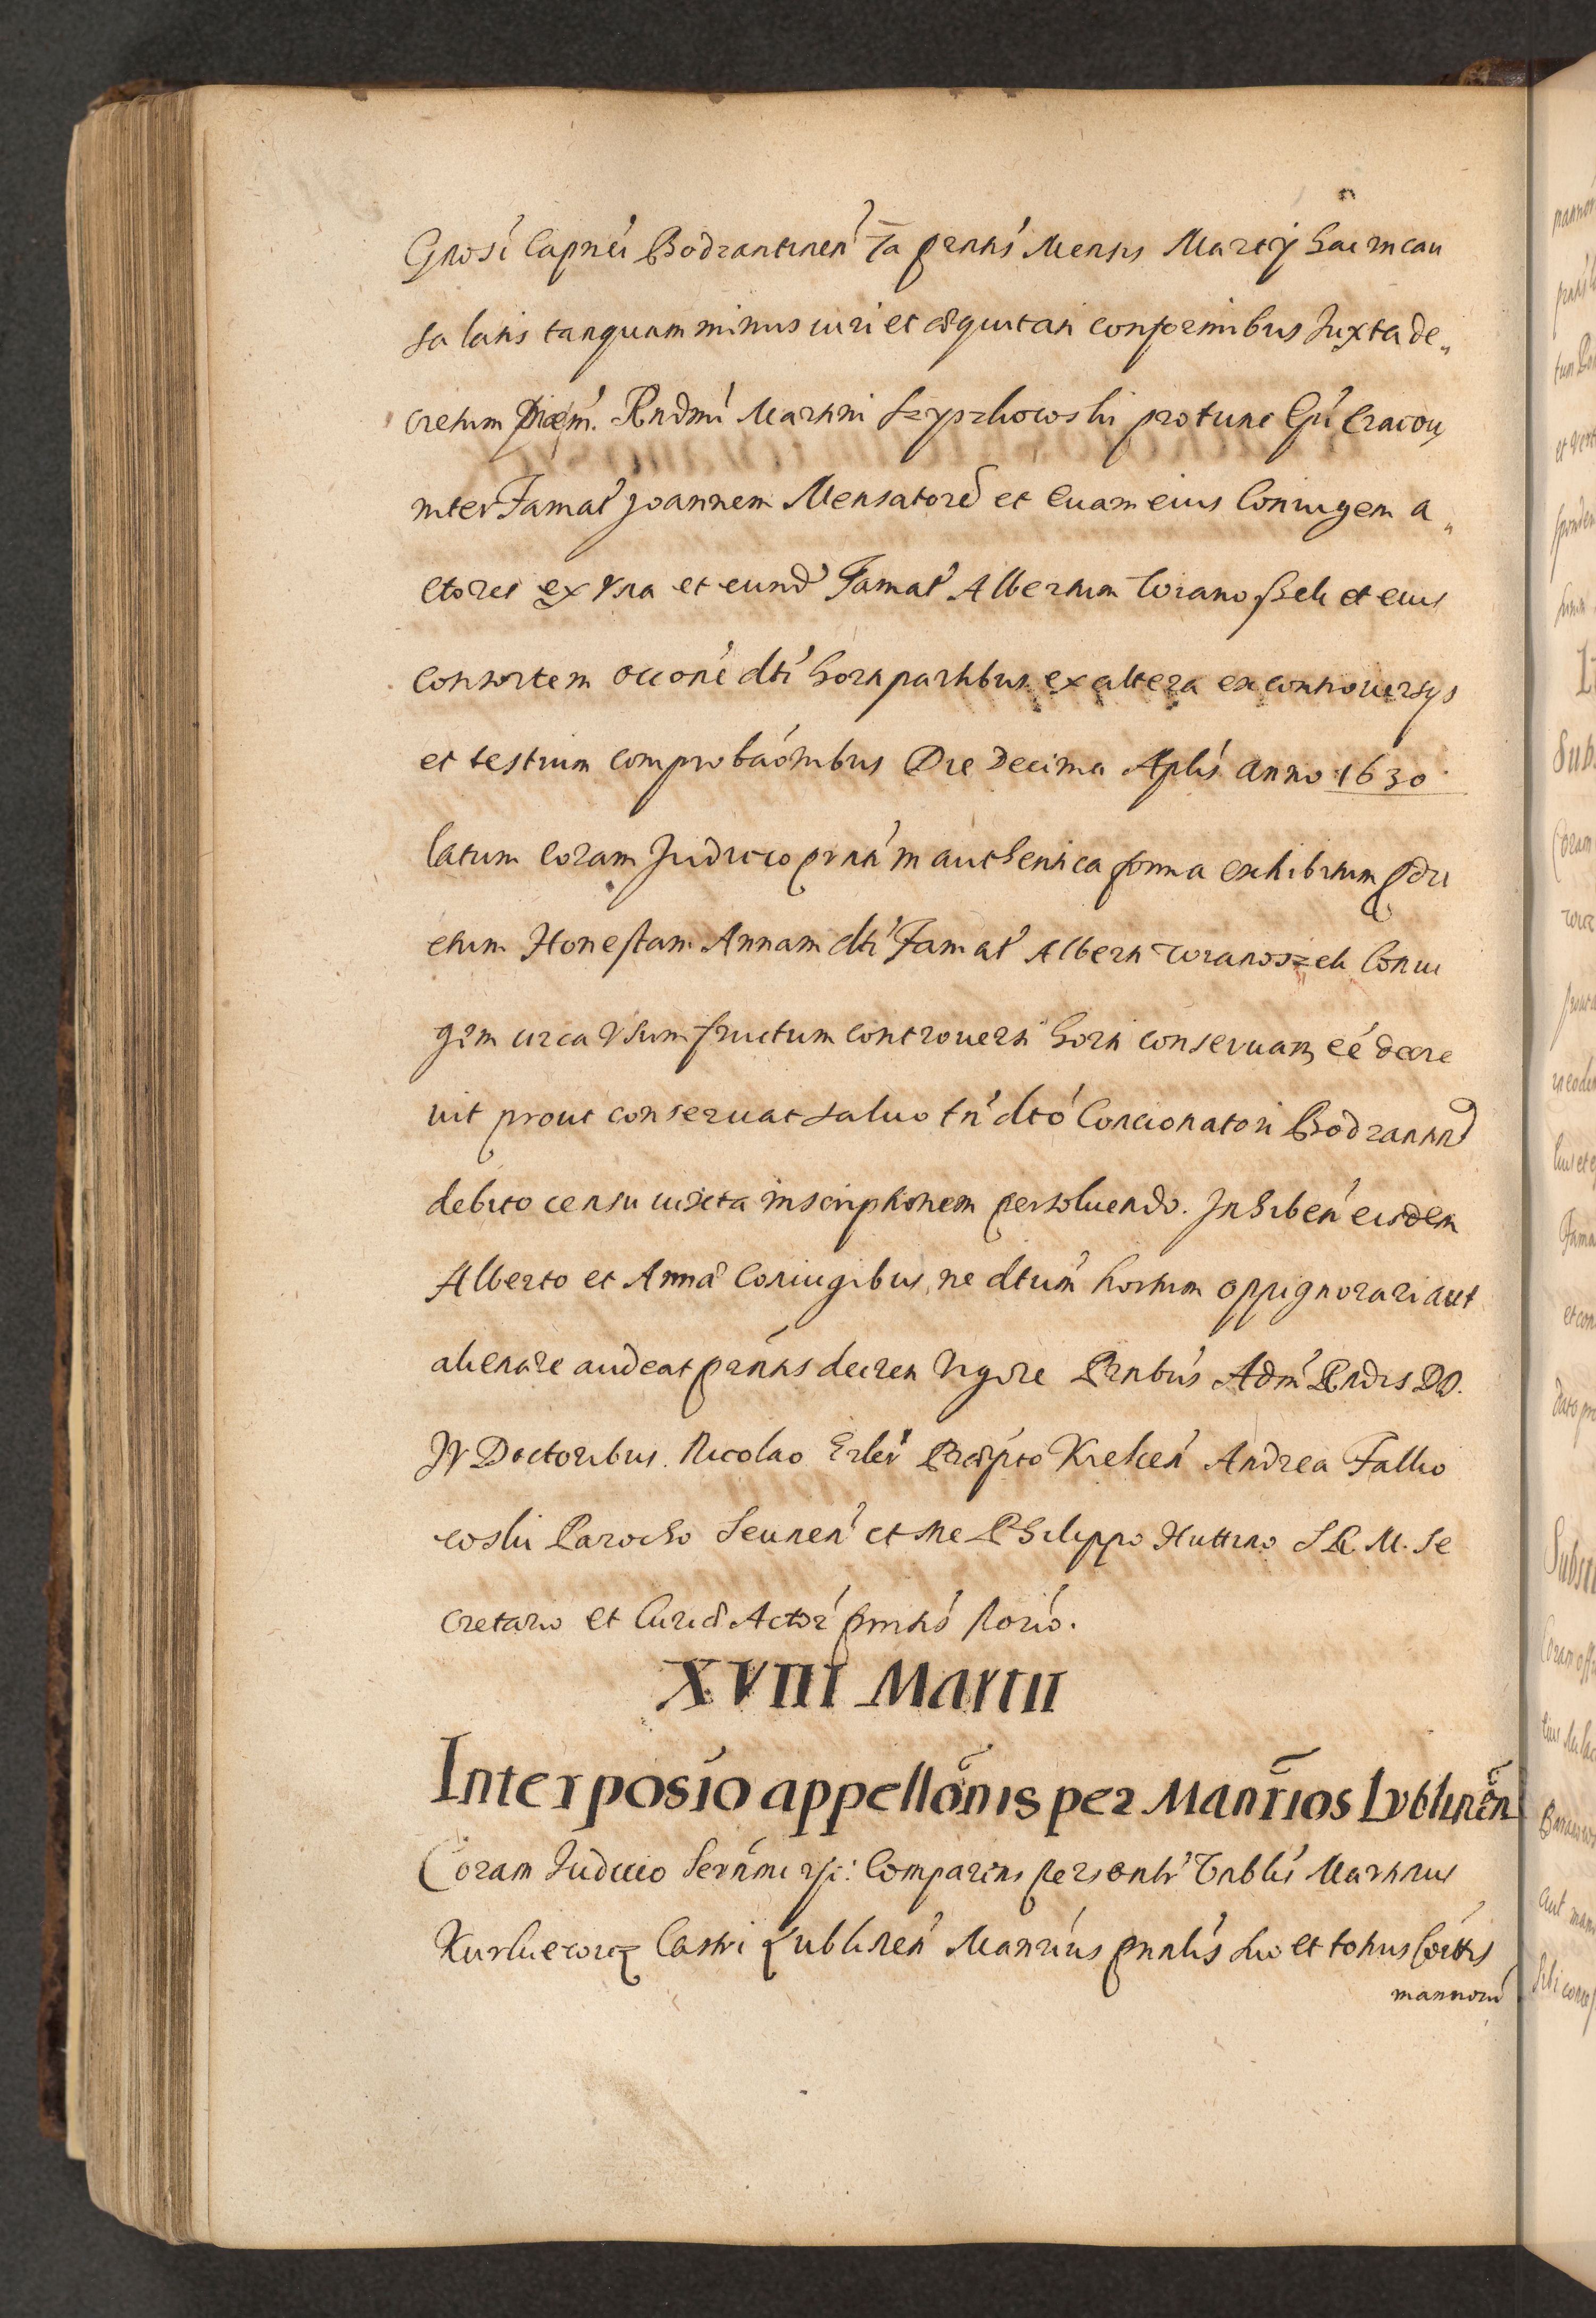 Gnosi Capnei Bodzantinen Ta prntis Mensis Martij hac in cau
sa latis tanquam minus iuri et æquitati conformibus Juxta de„
cretum piæm. Rndmi Martini Szyszkowski pro tunc Epi Cracou
inter Famat Joannem Mensatore et Euam eius Coniugem a„
ctores ex vna et eund Famat Albertum Woranoszek et eius
consortem occone dti horti partibus ex altera ex controuersys
et testium comprobaonibus Die Decima Aplis anno 1630
latum coram Judicio prnti in authentica forma exhibitum
ctum Honestam Annam dti Famat Alberti Woranoszek Coniu
gem circa Vsumfructum controuersi horti conseruam eé decre
uit prout conseruat saluo tn dto Concionatori Bodzantin
debito censu iuxta inscriptionem persoluendo. Inhiben eisdem
Alberto et Anna Coniugibus, ne dtum hortum oppignorari aut
alienare audeat prntis decreti Vigore Prntbus Adm Rndis DD.
JV Doctoribus. Nicolao Erler Præpto Kielcen Andrea Falko
wski Parocho Seunen et me Philippo Huttino S R M. Se
cretario et Curiæ Actor prntis Norio.
XVIII Martii
Interposio appellonis per Manrios Lublinen
Coram Judicio Serenmi rsi: Comparens personlr Nblis Martinus
Kurkiewicz Castri Lublinen Manrius prnlis suo et totius Coettis
mannoru